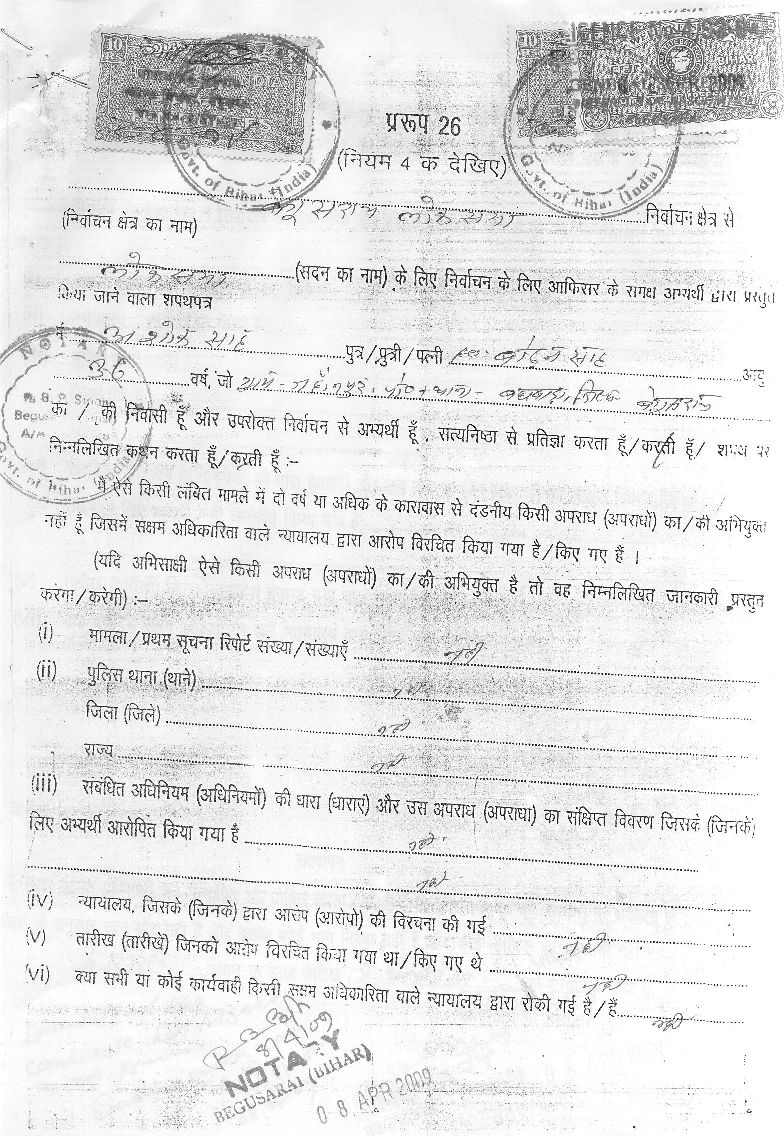 10 10
Govt. of Bihar (India)
08 APR 2009
Govt. of Bihar (India)
प्ररूप 26
(नियम 4 क देखिए)
लोक सभा निर्वाचन क्षेत्र से
(निर्वाचन क्षेत्र का नाम)
लोक सभा (सदन का नाम) के लिए निर्वाचन के लिए आफिसर के समक्ष अभ्यर्थी द्वारा प्रस्तुत
किया जाने वाला शपथपत्र
मैं अशोक साह पुत्र/पुत्री/पत्नी स्व० साह आयु
36 वर्ष, जो ग्राम- थाना- बछवाड़ा, जिला
NOTARY
Govt. of Bihar (India)
का / की निवासी हूँ और उपरोक्त निर्वाचन से अभ्यर्थी हूँ , सत्यनिष्ठा से प्रतिज्ञा करता हूँ/करती हूँ/ शपथ पर
निम्नलिखित कथन करता हूँ/करती हूँ :-
मैं ऐसे किसी लंबित मामले में दो वर्ष या अधिक के कारावास से दंडनीय किसी अपराध (अपराधों) का/की अभियुक्त
नहीं हूँ जिसमें सक्षम अधिकारिता वाले न्यायालय द्वारा आरोप विरचित किया गया है/किए गए हैं ।
(यदि अभिसाक्षी ऐसे किसी अपराध (अपराधों) का/की अभियुक्त है तो वह निम्नलिखित जानकारी प्रस्तुत
करेगा/करेगी) :-
(i) मामला/प्रथम सूचना रिपोर्ट संख्या/संख्याएँ नहीं
(ii) पुलिस थाना (थाने) नहीं
जिला (जिले) नहीं
राज्य नहीं
(iii) संबंधित अधिनियम (अधिनियमों) की धारा (धाराएं) और उस अपराध (अपराधा) का संक्षिप्त विवरण जिसके (जिनके)
लिए अभ्यर्थी आरोपित किया गया है नहीं
नहीं
(iv) न्यायालय, जिसके (जिनके) द्वारा आरोप (आरोपो) की विरचना की गई नहीं
(v) तारीख (तारीखें) जिनको आरोप विरचित किया गया था/किए गए थे नहीं
(vi) क्या सभी या कोई कार्यवाही किसी सक्षम अधिकारिता वाले न्यायालय द्वारा रोकी गई है/हैं नहीं
8/4/09
NOTARY
BEGUSARAI (BIHAR)
08 APR 2009